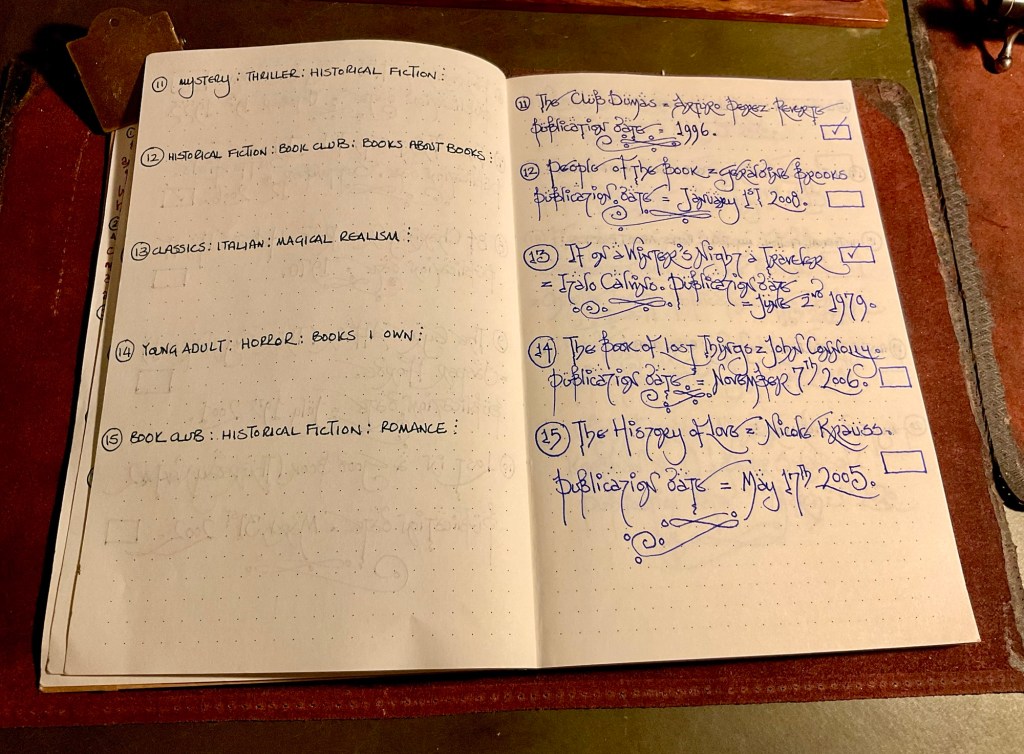 11 MYSTERY : THRILLER : HISTORICAL FICTION :
12 HISTORICAL FICTION : BOOK CLUB : BOOKS ABOUT BOOKS :
13 CLASSICS : ITALIAN : MAGICAL REALISM :
14 YOUNG ADULT : HORROR : BOOKS I OWN :
15 BOOK CLUB : HISTORICAL FICTION : ROMANCE :
11 The Club Dumas = Arturo Perez-Reverte
publication date = 1996.
12 People of the Book = Geraldine Brooks
publication date = January 1st 2008.
13 If on a Winter's Night a Traveler
= Italo Calvino. publication date
= June 2nd 1979.
14 The Book of Lost Things = John Connolly.
publication date = November 7th 2006.
15 The History of Love = Nicole Krauss.
publication date = May 17th 2005.